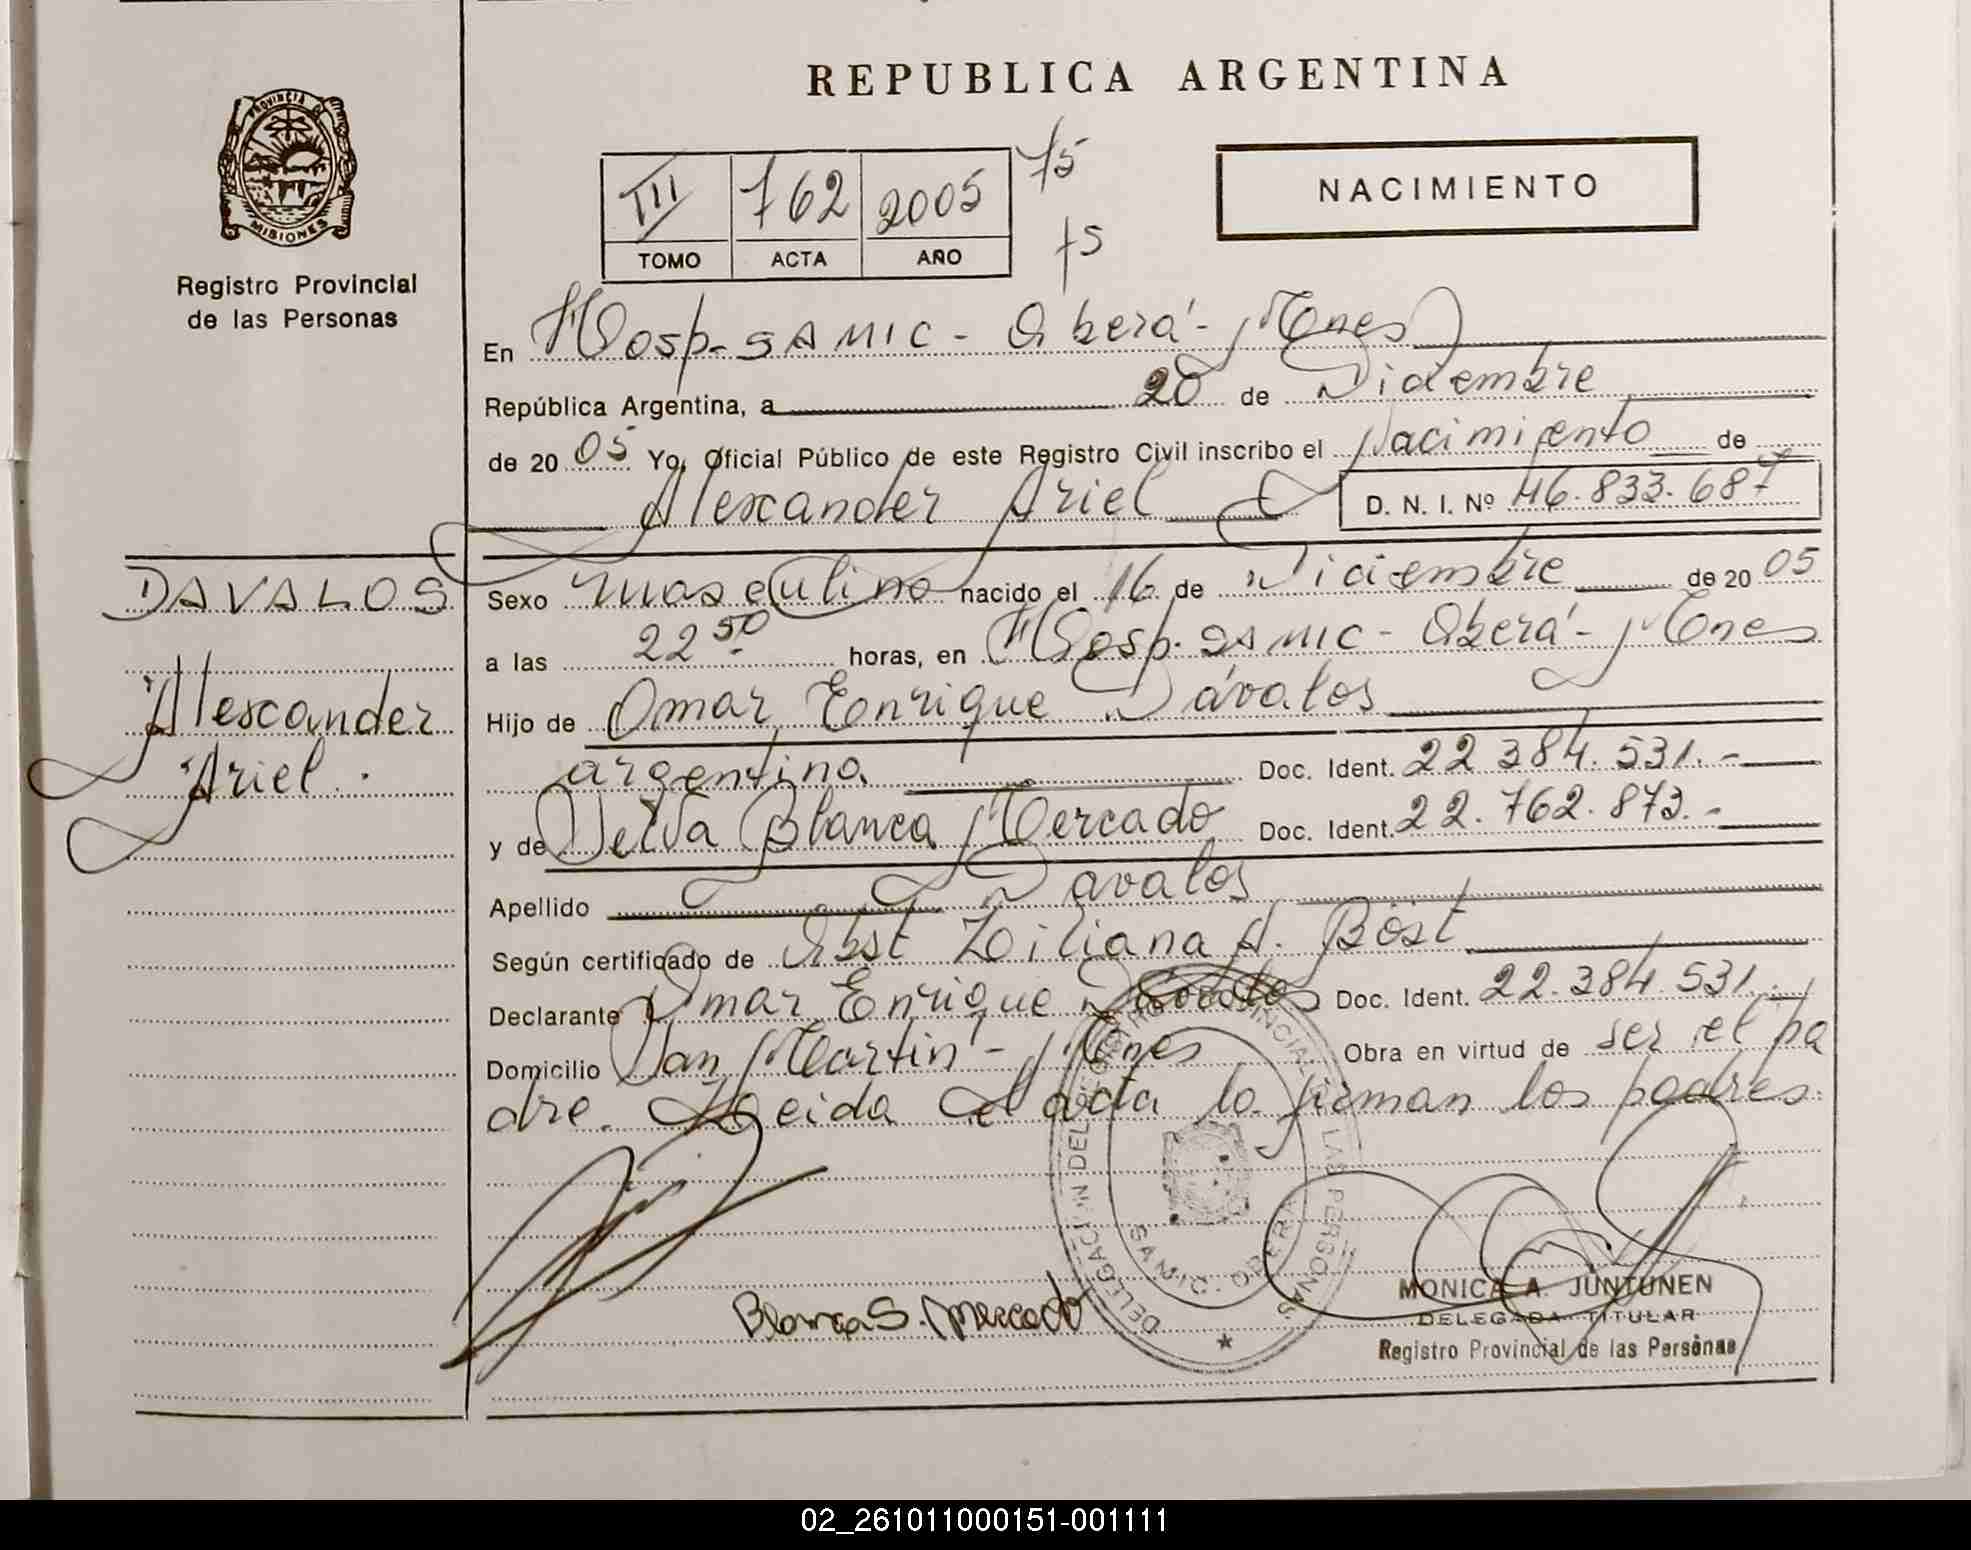 REPUBLICA ARGENTINA
PROVINCIA DE MISIONES
Registro Provincial
de las Personas
III 762 2005
TOMO ACTA AÑO
75
75
NACIMIENTO
En Hosp. SAMIC - Oberá - Mnes
República Argentina, a 20 de Diciembre
de 2005 Yo, Oficial Público de este Registro Civil inscribo el Nacimiento de
Alexcander Ariel D. N. I. Nº 46.833.687
DAVALOS
Alexcander
Ariel.
Sexo masculino nacido el 16 de Diciembre de 2005
a las 22 50 horas, en Hosp. SAMIC - Oberá - Mnes
Hijo de Omar Enrique Dávalos
argentino. Doc. Ident. 22 384.531.-
y de Selva Blanca Mercado Doc. Ident. 22.762.873.-
Apellido Davalos
Según certificado de Obst Liliana A. Böst
Declarante Omar Enrique Davalos Doc. Ident. 22.384.531.-
Domicilio San Martin - Mnes Obra en virtud de ser el pa
dre. Leida el acta la firman los padres.
Blanca S. Mercado
DELEGACION DEL REGISTRO PROVINCIAL DE LAS PERSONAS
SAMIC - OBERA
MONICA A. JUNTUNEN
DELEGADA TITULAR
Registro Provincial de las Personas
02_261011000151-001111